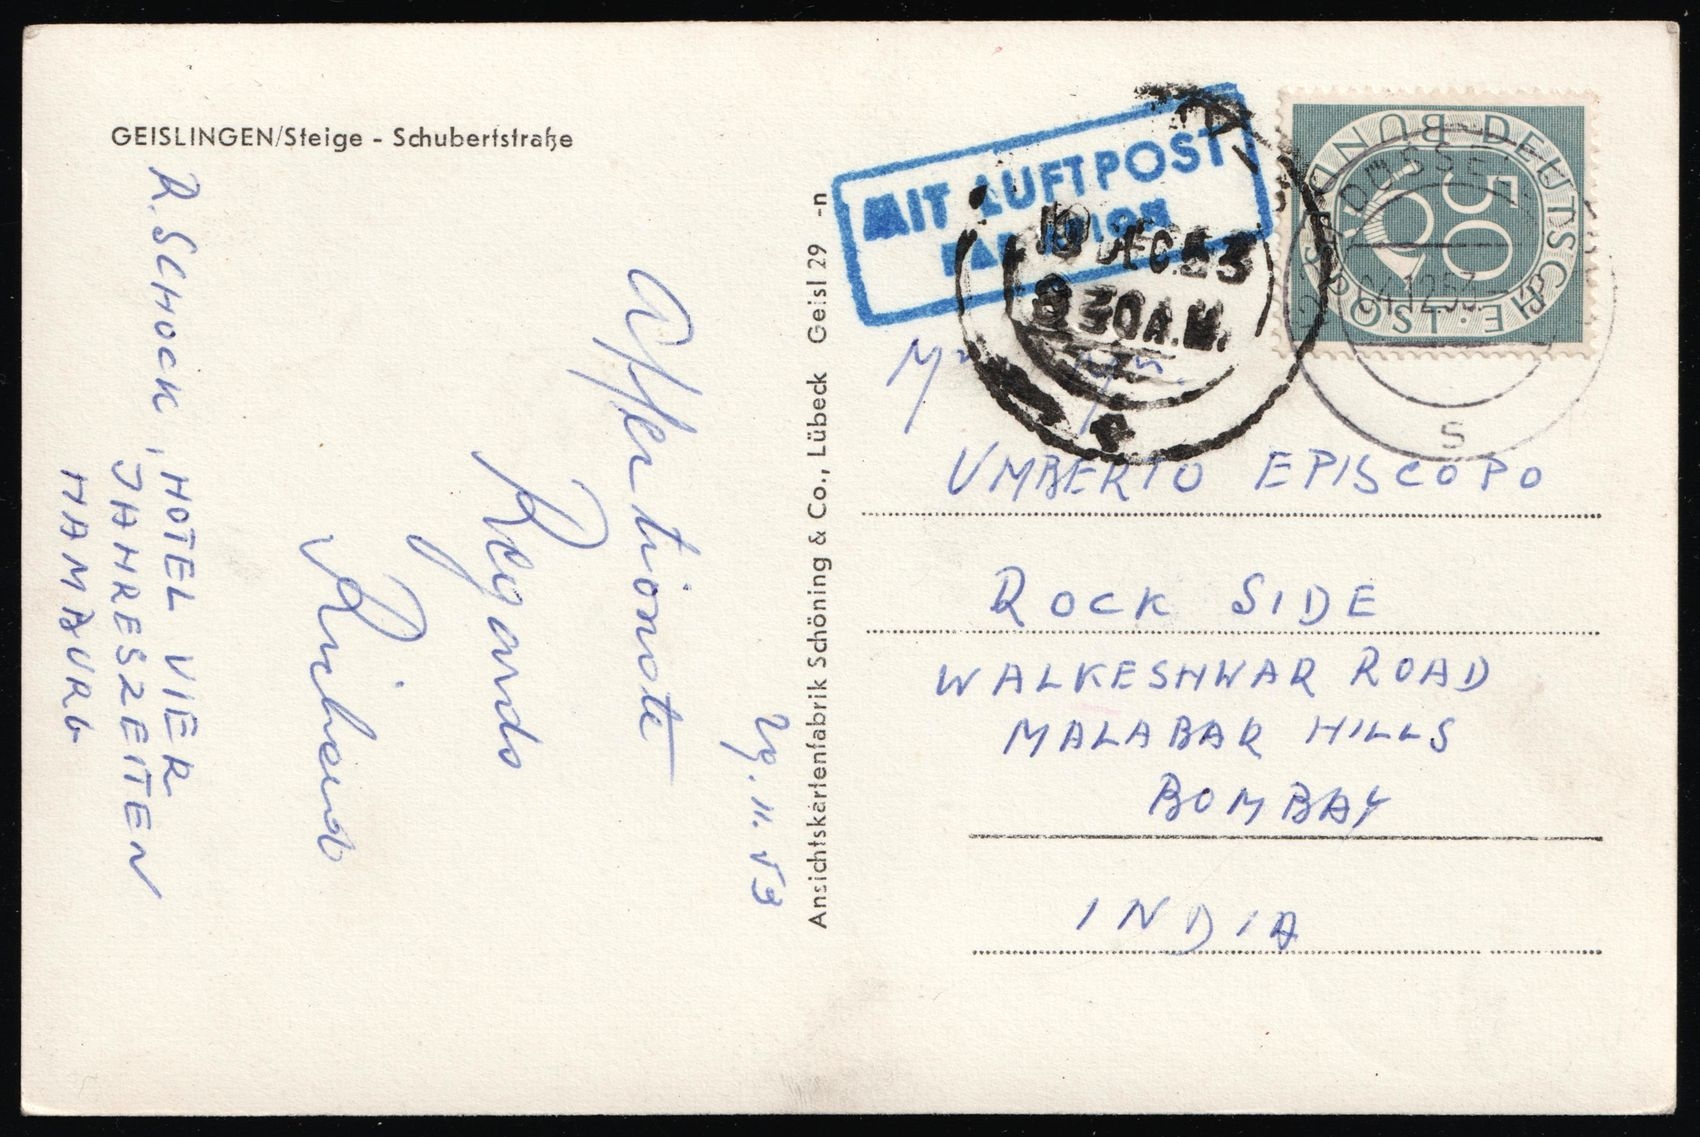 GEISLINGEN/Steige - Schubertstraße
R. SCHOCK, HOTEL VIER
JAHRESZEITEN
HAMBURG
Affectionate
Regards
Richard
29.11.53
Ansichtskartenfabrik Schöning & Co., Lübeck Geisl 29 -n
MIT LUFTPOST
PAR AVION
19 DEC. 53
8 30 A.M.
DEUTSCHE BUNDESPOST
50
DÜSSEL
12.53
s
UMBERTO EPISCOPO
ROCK SIDE
WALKESHWAR ROAD
MALABAR HILLS
BOMBAY
INDIA